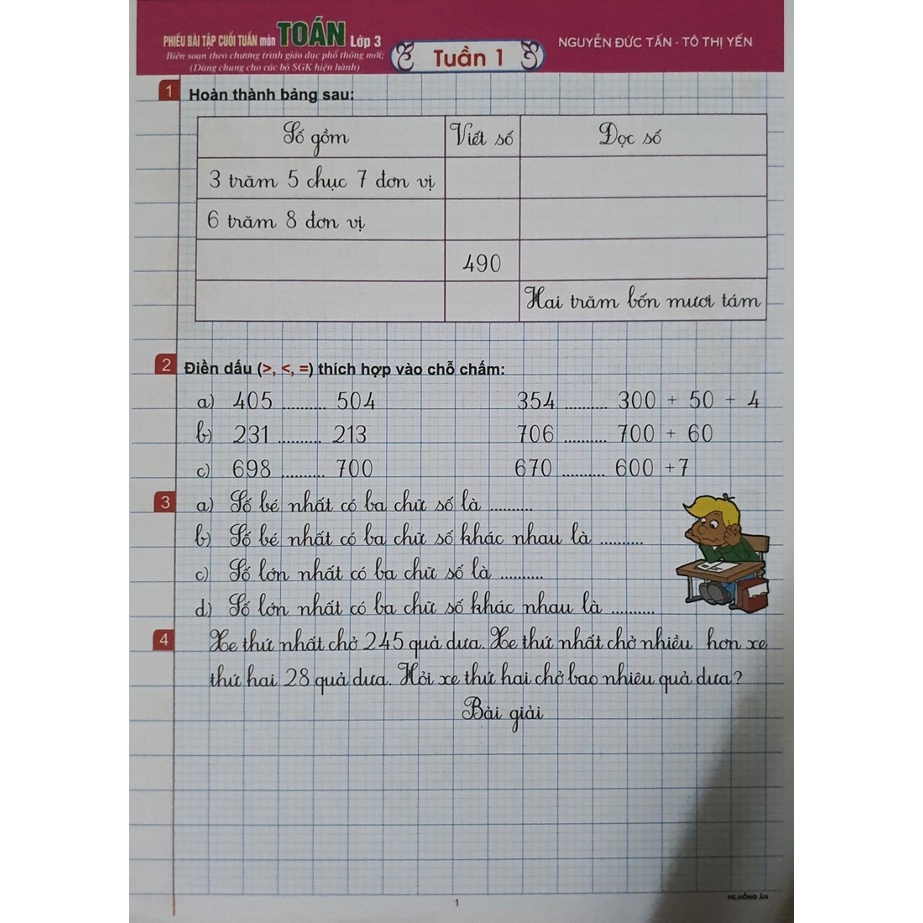 PHIẾU BÀI TẬP CUỐI TUẦN môn TOÁN Lớp 3
Biên soạn theo chương trình giáo dục phổ thông mới;
(Dùng chung cho các bộ SGK hiện hành)
Tuần 1
NGUYỄN ĐỨC TẤN - TÔ THỊ YẾN
1 Hoàn thành bảng sau:
Số gồm Viết số Đọc số
3 trăm 5 chục 7 đơn vị
6 trăm 8 đơn vị
490
Hai trăm bốn mươi tám
2 Điền dấu (>, <, =) thích hợp vào chỗ chấm:
a) 405 .......... 504 354 .......... 300 + 50 + 4
b) 231 .......... 213 706 .......... 700 + 60
c) 698 .......... 700 670 .......... 600 +7
3 a) Số bé nhất có ba chữ số là ..........
b) Số bé nhất có ba chữ số khác nhau là ..........
c) Số lớn nhất có ba chữ số là ..........
d) Số lớn nhất có ba chữ số khác nhau là ..........
4 Xe thứ nhất chở 245 quả dưa. Xe thứ nhất chở nhiều hơn xe
thứ hai 28 quả dưa. Hỏi xe thứ hai chở bao nhiêu quả dưa?
Bài giải
1
NG.HỒNG ÂN